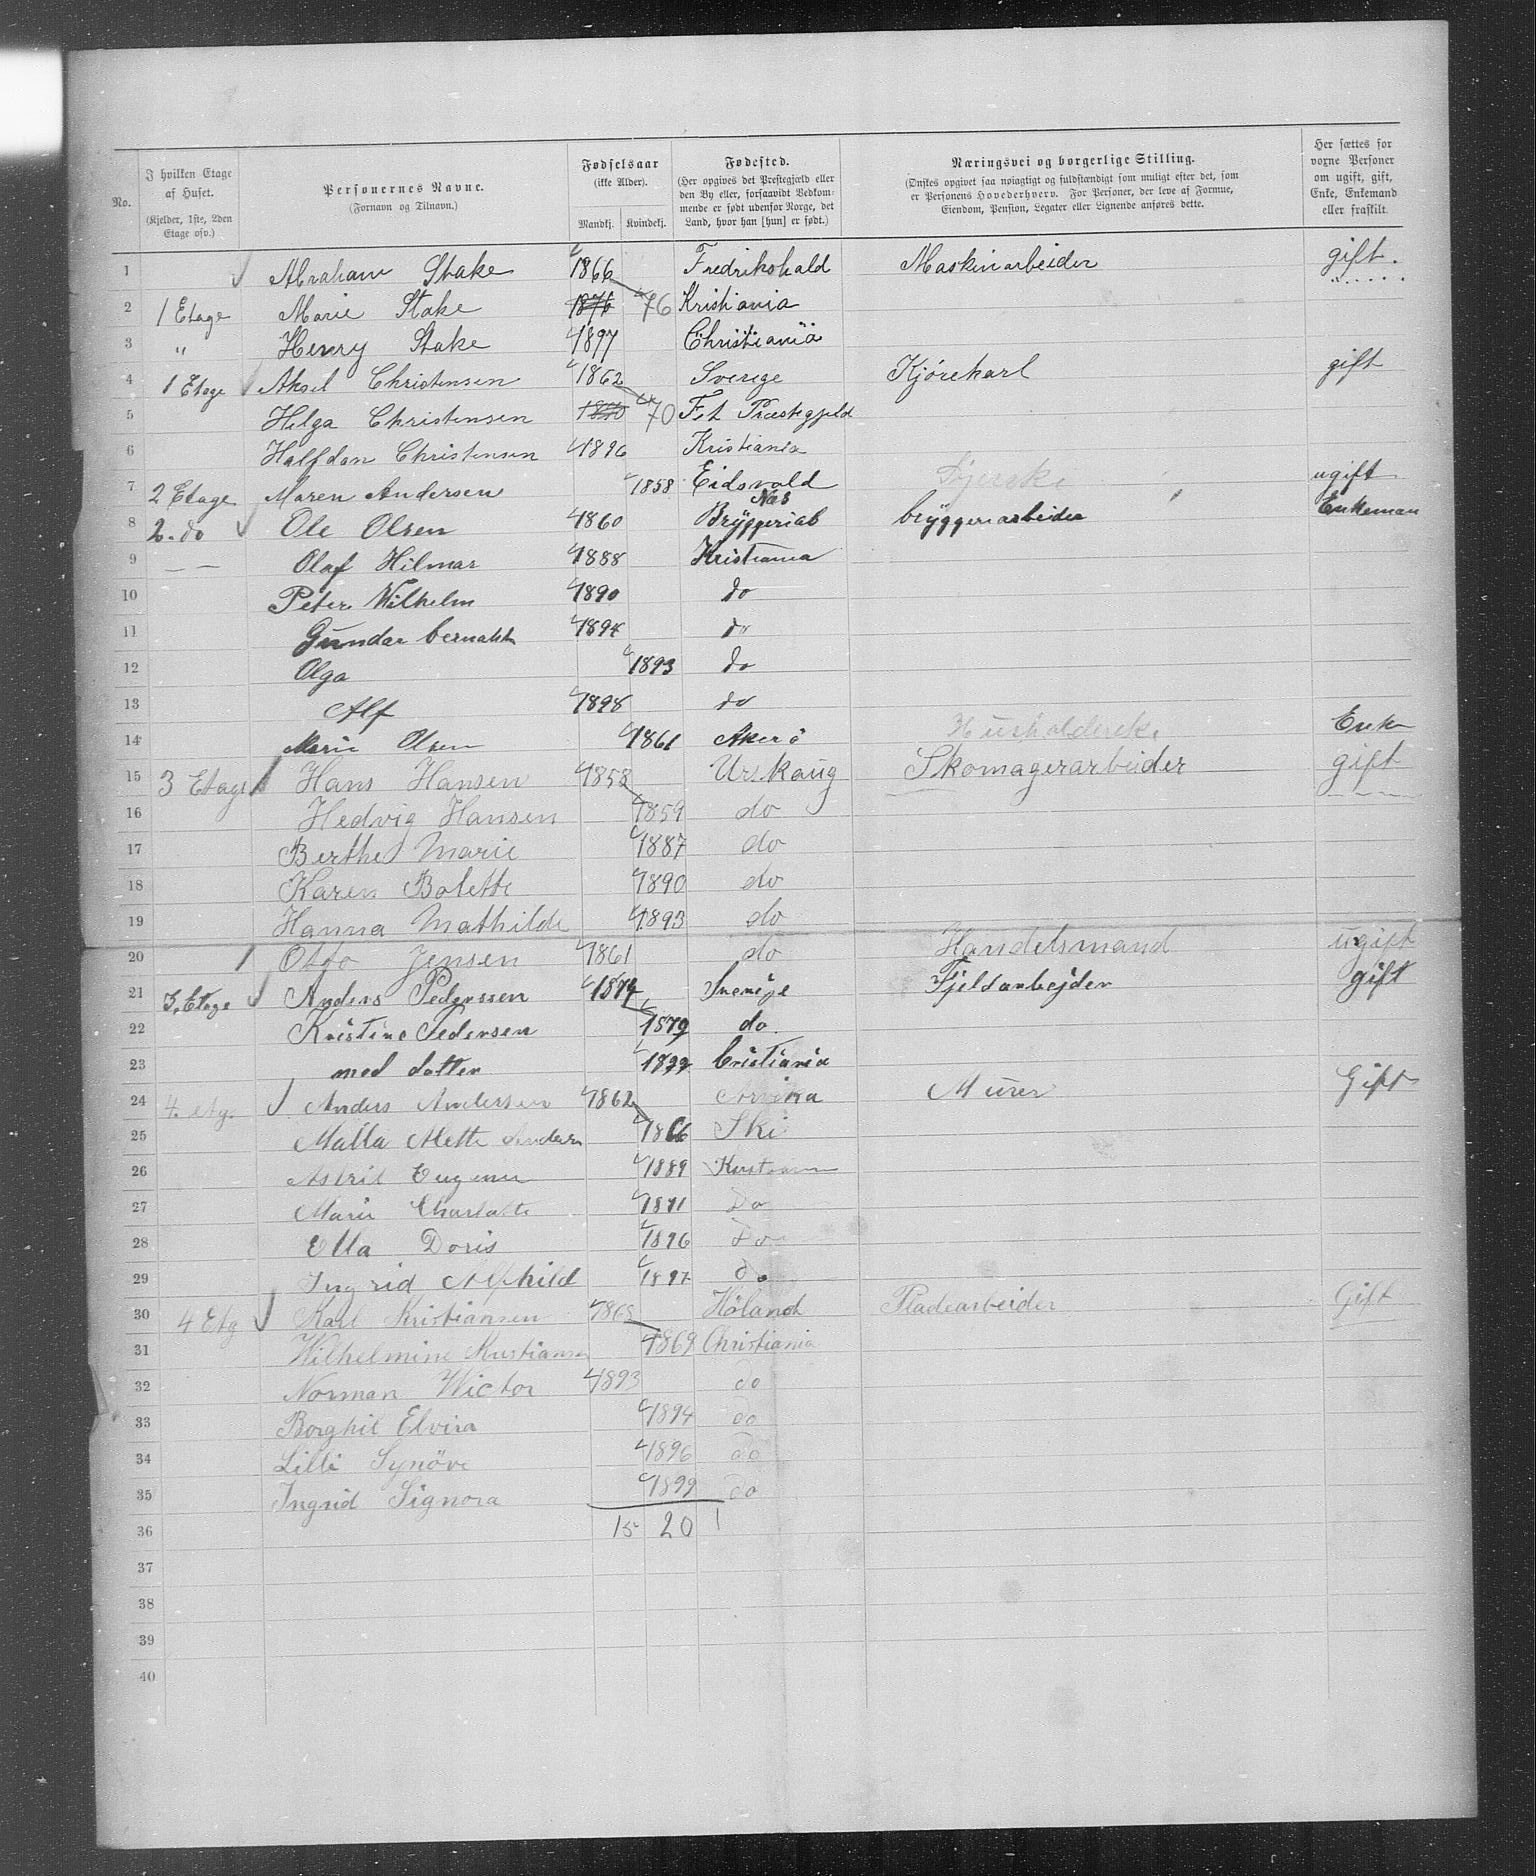 No.
I hvilken Etage af Huset.
(Kjelder, 1ste, 2den Etage osv.)
Personernes Navne.
(Fornavn og Tilnavn.)
Fødselsaar
(ikke Alder).
Mandkj. Kvindekj.
Fødested.
(Her opgives det Prestegjæld eller den By eller, forsaavidt Vedkommende er født udenfor Norge, det Land, hvor han [hun] er født.)
Næringsvei og borgerlige Stilling.
(Ønskes opgivet saa nøiagtigt og fuldstændigt som muligt efter det, som er Personens Hovederhverv. For Personer, der leve af Formue, Eiendom, Pension, Legater eller Lignende anføres dette.
Her sættes for voxne Personer om ugift, gift, Enke, Enkemand eller fraskilt.
1 Abraham Stake 1866 Fredrikshald Maskinarbeider gift.
2 1 Etage Marie Stake 1876 76 Kristiania
3 " Henry Stake 1897 Christiania
4 1 Etage Aksel Christensen 1862 Sverige Kjørekarl gift
5 Helga Christensen 1870 70 Fet Præstegjeld
6 Halfdan Christensen 1896 Kristiania
7 2 Etage Maren Andersen 1858 Eidsvold ugift
8 2. do Ole Olsen 1860 Nes bryggeriarbeider Enkeman
9 — — Olaf Hilmar 1888 Kristiania
10 Peter Wilhelm 1890 do
11 Gunder 1894 do
12 Olga 1893 do
13 Alf 1898 do
14 Marie Olsen 1861 Aker Enke
15 3 Etage Hans Hansen 1858 Urskaug Skomagerarbeider gift
16 Hedvig Hansen 1859 do
17 Berthe Marie 1887 do
18 Karen Bolette 1890 do
19 Hanna Mathilde 1893 do
20 Otto Jensen 1861 do Handelsmand ugift
21 3. Etage Anders Pederssen 1874 Sverige Fjeldarbejder gift
22 Kristine Pedersen 1879 do.
23 med datter 1899 Cristiania
24 4. etg. Anders Andersen 1862 Arvika Murer Gift
25 Malla Alette Andersn 1866 Ski
26 Astrid Eugenie 1889
27 Marie Charlotte 1891 Do
28 Ella Doris 1896 Do
29 Ingrid Alfhild 1897 Do
30 4 Etg Karl Kristiansen 1868 Höland Pladearbeider Gift
31 Wilhelmine Kristiansen 1869 Christiania
32 Norman Wictor 1893 do
33 Borghil Elvira 1894 do
34 Lilli Synöve 1896 do
35 Ingrid Signora 1899 do
36 15 20
37
38
39
40